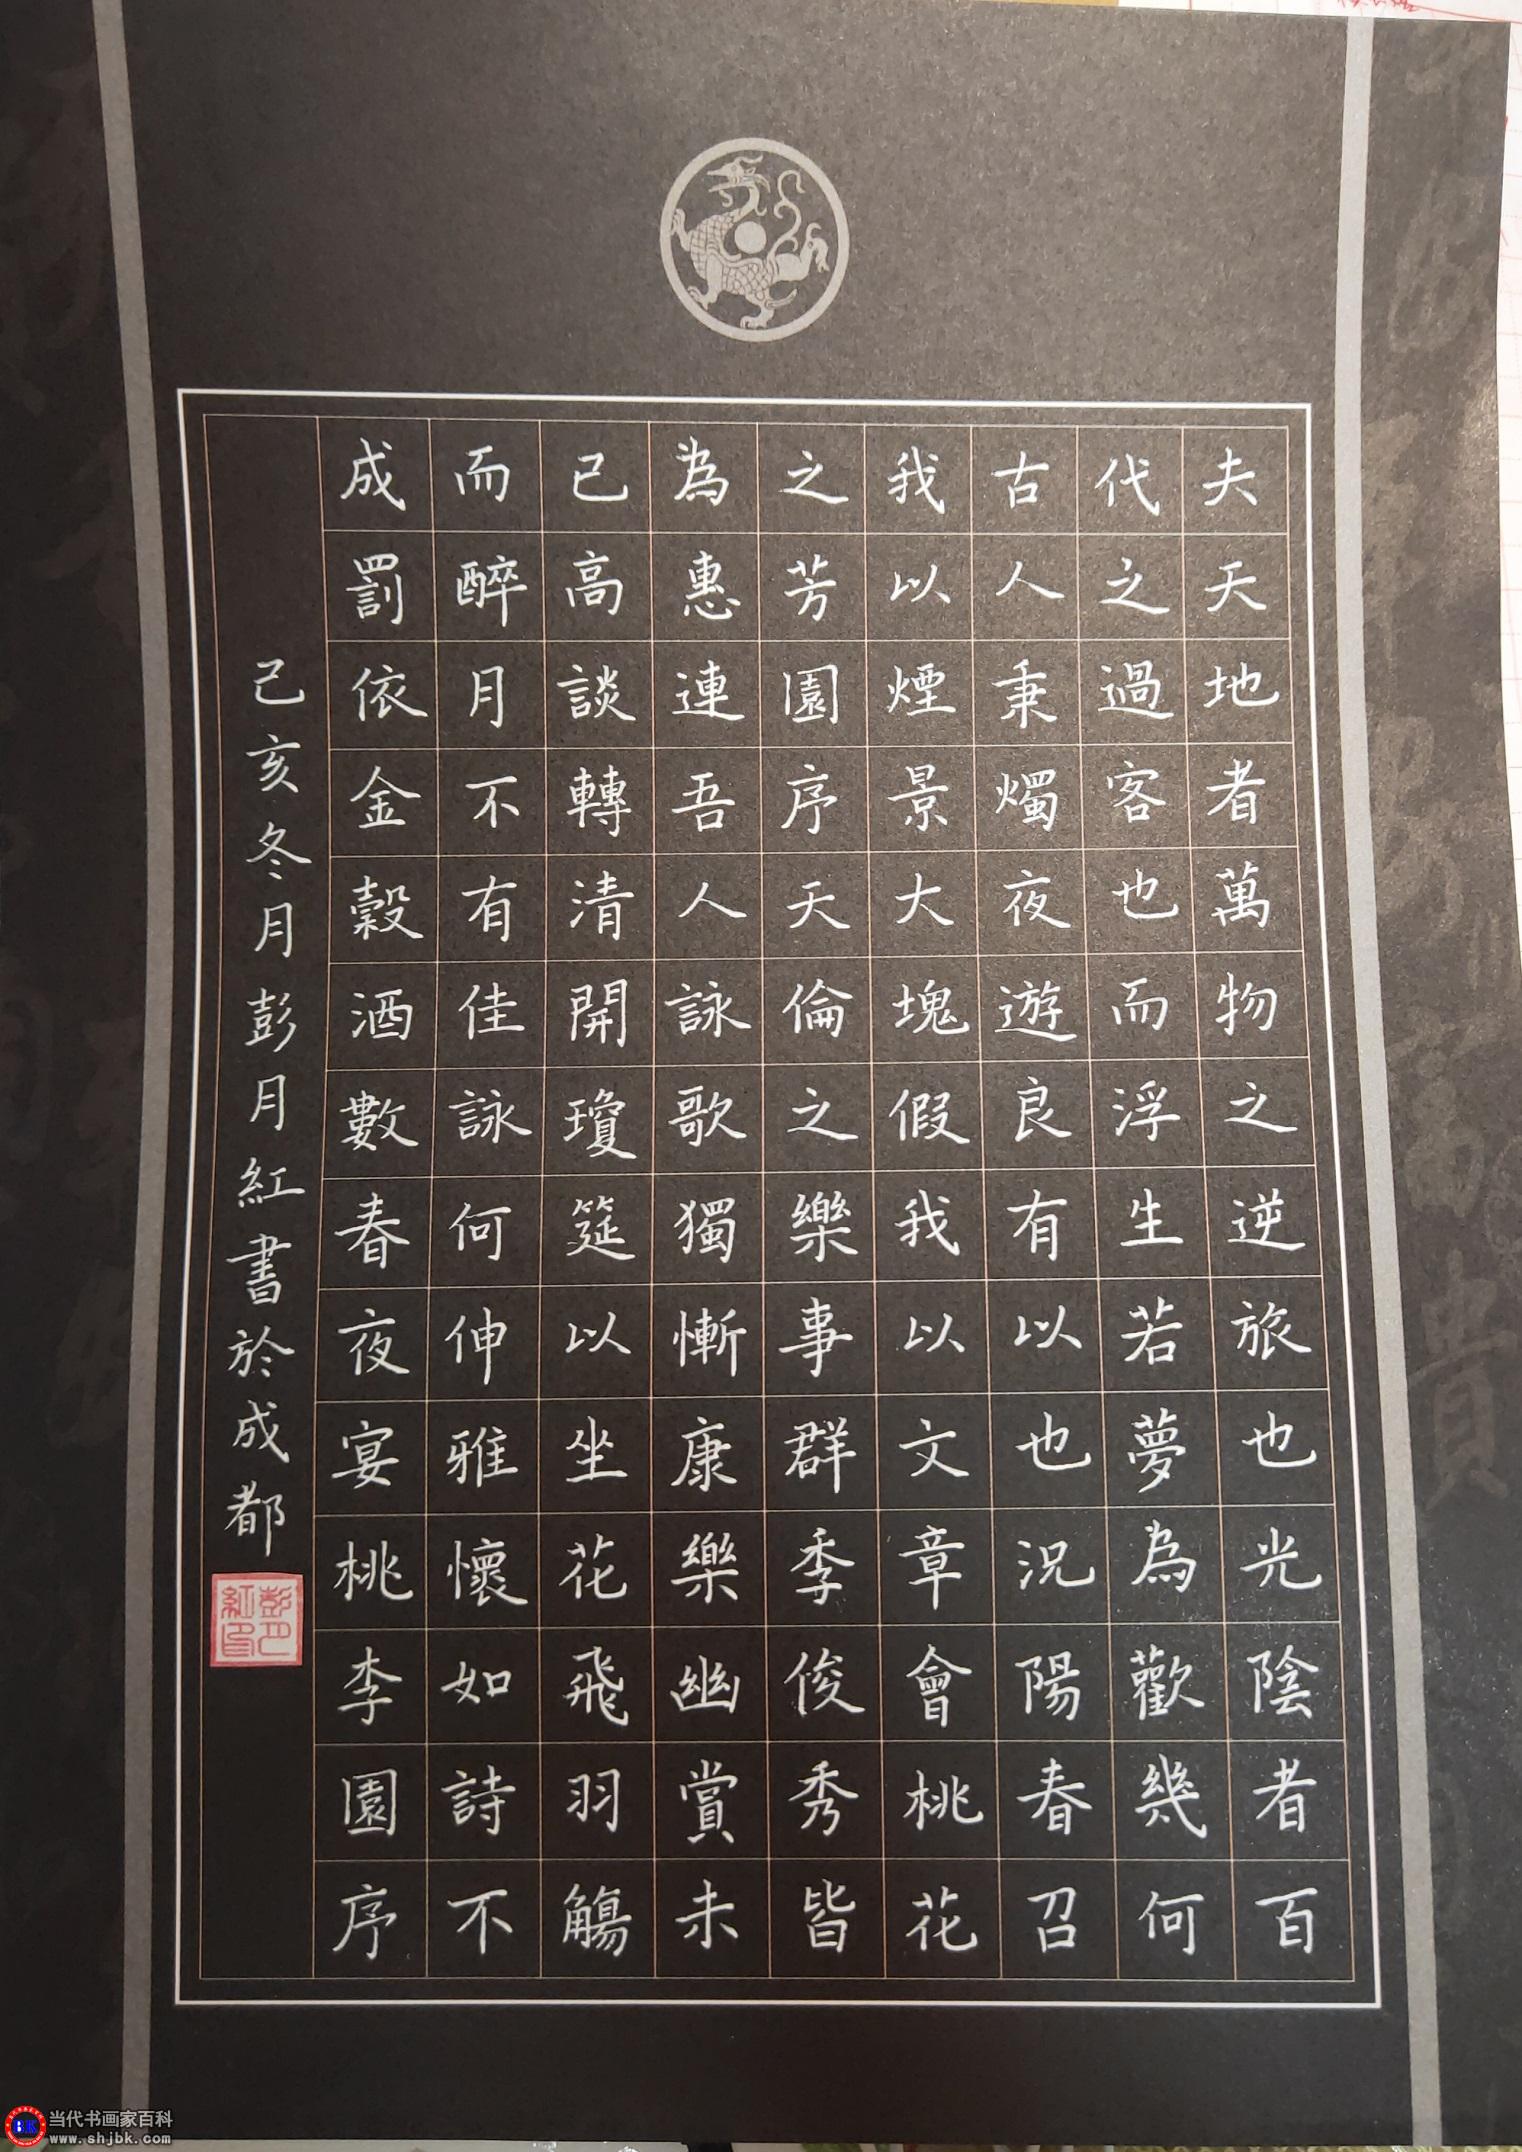 夫天地者萬物之逆旅也光陰者百
代之過客也而浮生若夢為歡幾何
古人秉燭夜遊良有以也況陽春召
我以煙景大塊假我以文章會桃花
之芳園序天倫之樂事群季俊秀皆
為惠連吾人詠歌獨慚康樂幽賞未
已高談轉清開瓊筵以坐花飛羽觴
而醉月不有佳詠何伸雅懷如詩不
成罰依金穀酒數春夜宴桃李園序
己亥冬月彭月紅書於成都
彭月紅印
当代书画家百科
www.shjbk.com